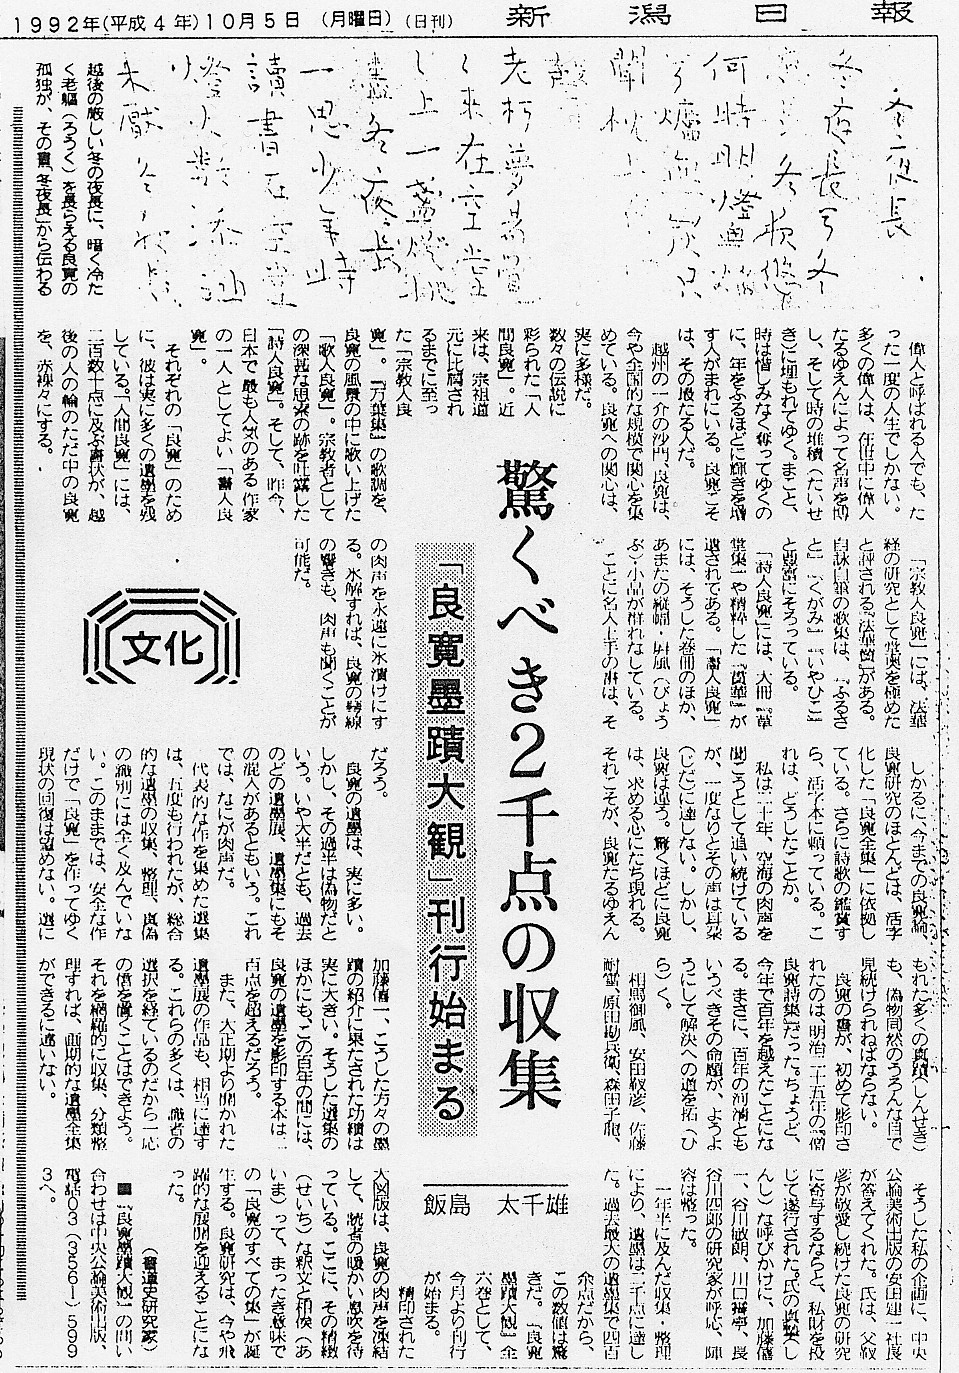 1992年(平成4年)10月5日 (月曜日) (日刊)
新潟日報
冬夜長
越後の厳しい冬の夜長に、暗く冷た
く老軀(ろうく)を長らえる良寛の
孤独が、その書「冬夜長」から伝わる
驚くべき2千点の収集
「良寛墨蹟大観」刊行始まる
飯島 太千雄
文化
偉人と呼ばれる人でも、た
った一度の人生でしかない。
多くの偉人は、在世中に偉人
たるゆえんによって名声を博
し、そして時の堆積(たいせ
き)に埋もれてゆく。まこと、
時は惜しみなく奪ってゆくの
に、年をふるほどに輝きを増
す人がまれにいる。良寛こそ
は、その最たる人だ。
越州の一介の沙門、良寛は、
今や全国的な規模で関心を集
めている。良寛への関心は、
実に多様だ。
数々の伝説に
彩られた「人
間良寛」。近
来は、宗祖道
元に比肩され
るまでに至っ
た「宗教人良
寛」。『万葉集』の歌調を、
良寛の風景の中に歌い上げた
「歌人良寛」。宗教者として
の深甚な思索の跡を吐露した
「詩人良寛」。そして、昨今、
日本で最も人気のある作家
の一人としてよい「書人良
寛」。
それぞれの「良寛」のため
に、彼は実に多くの遺墨を残
している。「人間良寛」には、
二百数十点に及ぶ書状が、越
後の人の輪のただ中の良寛
を、赤裸々にする。
「宗教人良寛」には、法華
経の研究として堂奥を極めた
と評される『法華讃』がある。
自詠自筆の歌集は、『ふるさ
と』『くがみ』『いやひこ』
と豊富にそろっている。
「詩人良寛」には、大冊『草
堂集』や精粋した『貫華』が
遺されてある。「書人良寛」
には、そうした巻冊のほか、
あまたの縦幅・屏風(びょう
ぶ)・小品が群れなしている。
ことに名人上手の書は、そ
の肉声を永遠に氷漬けにす
る。氷解すれば、良寛の琴線
の響きも、肉声も聞くことが
可能だ。
しかるに、今までの良寛論、
良寛研究のほとんどは、活字
化した『良寛全集』に依拠し
ている。さらに詩歌の鑑賞す
ら、活字本に頼っている。こ
れは、どうしたことか。
私は二十年、空海の肉声を
聞こうとして追い続けている
が、一度なりとその声は耳朶
(じだ)に達しない。しかし、
良寛は違う。驚くほどに良寛
は、求める心にたち現れる。
それこそが、良寛たるゆえん
だろう。
良寛の遺墨は、実に多い。
しかし、その過半は偽物だと
いう。いや大半だとも、過去
のどの遺墨展、遺墨集にもそ
の混入があるともいう。これ
では、なにが肉声だ。
代表的な作を集めた選集
は、五度も行われたが、総合
的な遺墨の収集、整理、真偽
の識別には全く及んでいな
い。このままでは、安全な作
だけで「良寛」を作ってゆく
現状の回復は望めない。選に
もれた多くの真蹟(しんせき)
も、偽物同然のうろんな目で
見続けられねばならない。
良寛の書が、初めて影印さ
れたのは、明治二十五年の『僧
良寛詩集』だった。ちょうど、
今年で百年を越えたことにな
る。まさに、百年の河清とも
いうべきその命題が、ようよ
うにして解決への道を拓(ひ
ら)く。
相馬御風、安田靫彦、佐藤
耐雪、原田勘兵衛、森田子龍、
加藤僖一、こうした方々の墨
蹟の紹介に果たされた功績は
実に大きい。そうした選集の
ほかにも、この百年の間には、
良寛の遺墨を影印する本は二
百点を超えるだろう。
また、大正期より開かれた
遺墨展の作品も、相当に達す
る。これらの多くは、識者の
選択を経ているのだから一応
の信を置くことはできよう。
それを網羅的に収集、分類整
理すれば、画期的な遺墨全集
ができるに違いない。
そうした私の企画に、中央
公論美術出版の安田建一社長
が答えてくれた。氏は、父靫
彦が敬愛し続けた良寛の研究
に寄与するならと、私財を投
じて遂行された。氏の真摯(し
んし)な呼びかけに、加藤僖
一、谷川敏朗、川口霽亭、長
谷川四郎の研究家が呼応、陣
容は整った。
一年半に及んだ収集・整理
により、遺墨は二千点に達し
た。過去最大の遺墨集で四百
余点だから、
この数値は驚
きだ。『良寛
墨蹟大観』全
六巻として、
今月より刊行
が始まる。
精印された
大図版は、良寛の肉声を凍結
して、読者の暖かい息吹を待
っている。ここに、その精緻
(せいち)な釈文と相俟(あ
いま)って、まったき意味で
の「良寛のすべての集」が誕
生する。良寛研究は、今や飛
躍的な展開を迎えることにな
った。
(書道史研究家)
■『良寛墨蹟大観』の問い
合わせは中央公論美術出版、
電話03(3561)599
3へ。